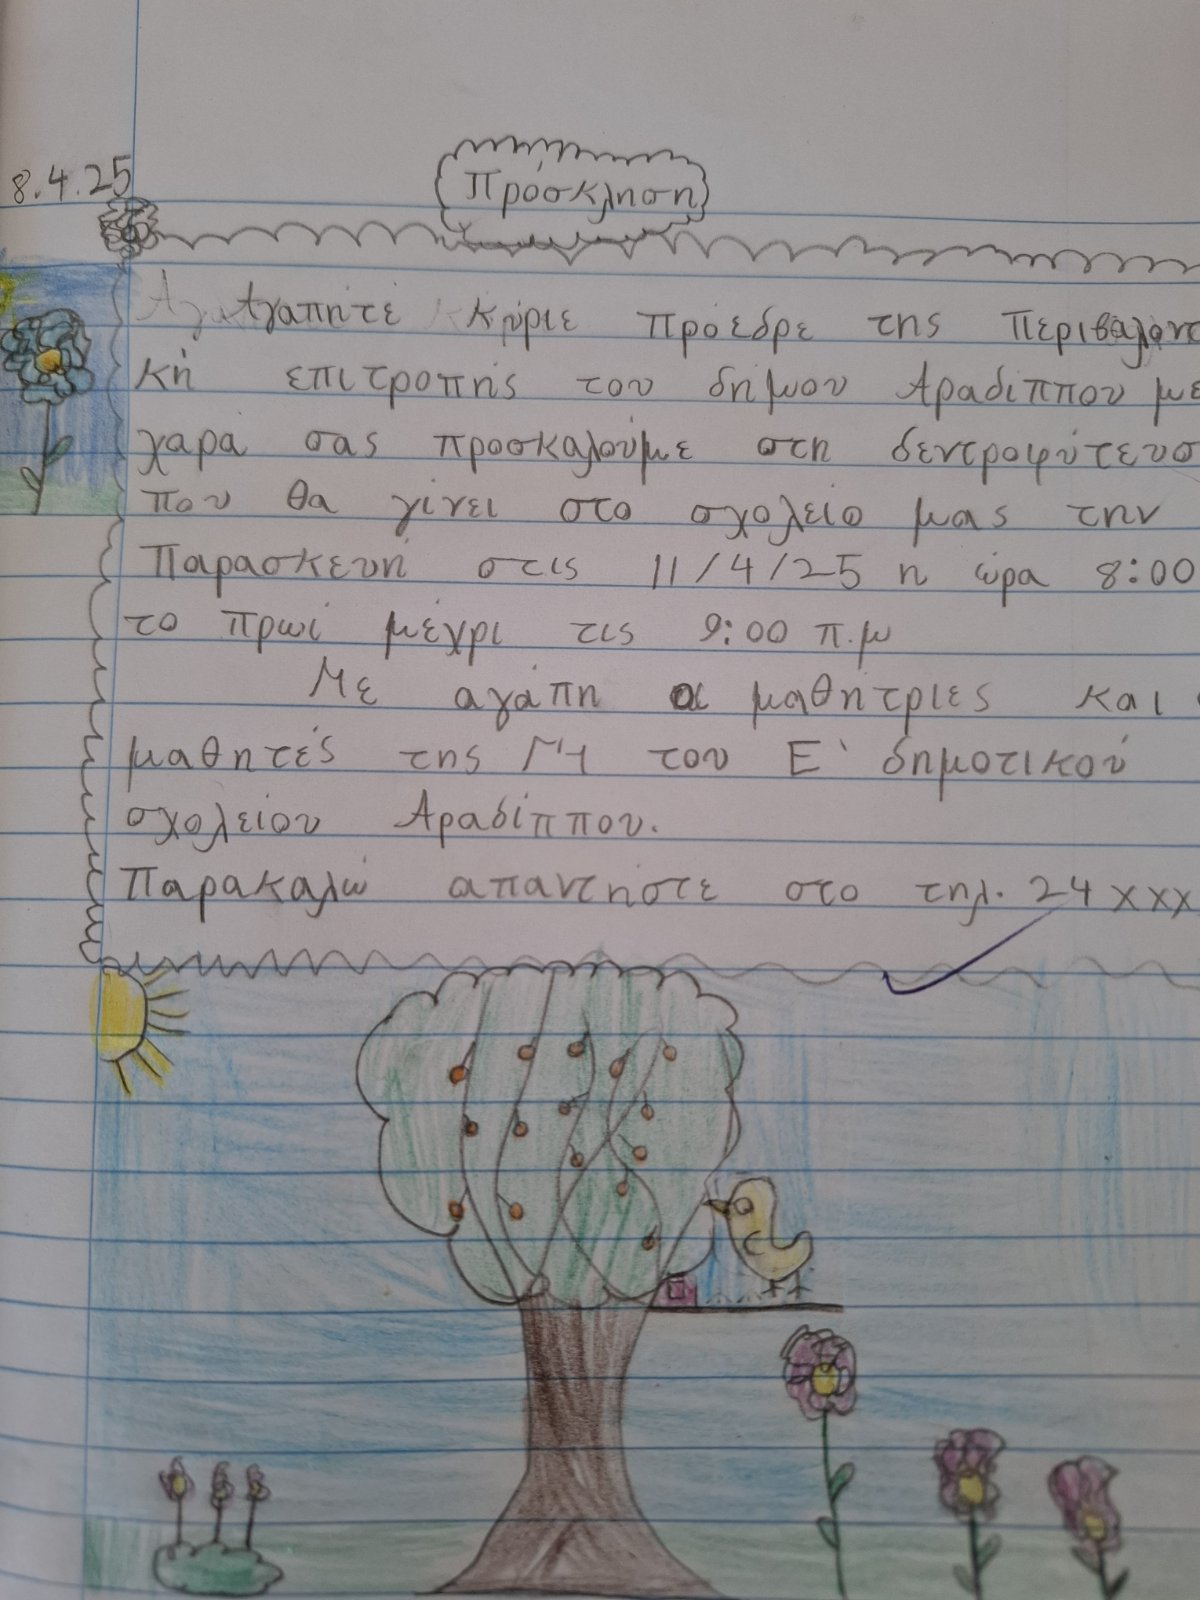 8.4.25
Πρόσκληση
Αγαπητέ κύριε πρόεδρε της περιβαλοντ
κή επιτροπής του δήμου Αραδίππου με
χαρά σας προσκαλούμε στη δεντροφύτευσ
που θα γίνει στο σχολείο μας την
Παρασκευή στις 11/4/25 η ώρα 8:00
το πρωί μέχρι τις 9:00 π.μ
Με αγάπη οι μαθήτριες και
μαθητές της του Ε' δημοτικού
σχολείου Αραδίππου.
Παρακαλώ απαντήστε στο τηλ. 24xxx